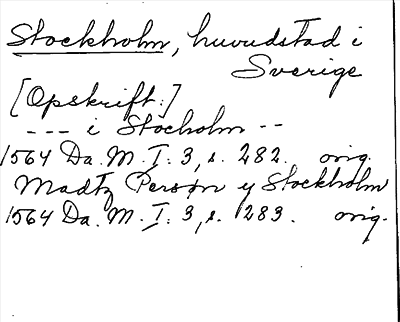 Stockholm, huvudstad i
Sverige
[Opskrift:]
--- i Stocholm --
1564 Da. M. I: 3, s. 282. orig.
Madtz Persøn y Stockholm
1564 Da. M. I: 3, s. 283. orig.